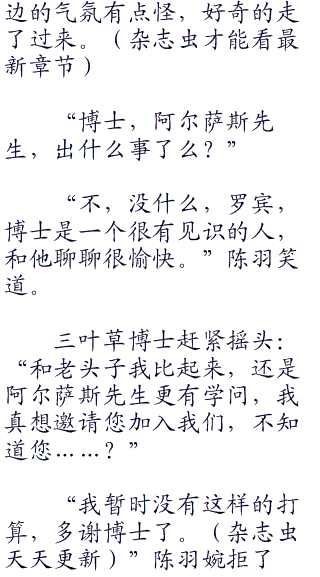 边的气氛有点怪，好奇的走
了过来。（杂志虫才能看最
新章节）
“博士，阿尔萨斯先
生，出什么事了么？”
“不，没什么，罗宾，
博士是一个很有见识的人，
和他聊聊很愉快。”陈羽笑
道。
三叶草博士赶紧摇头：
“和老头子我比起来，还是
阿尔萨斯先生更有学问，我
真想邀请您加入我们，不知
道您……？”
“我暂时没有这样的打
算，多谢博士了。（杂志虫
天天更新）”陈羽婉拒了